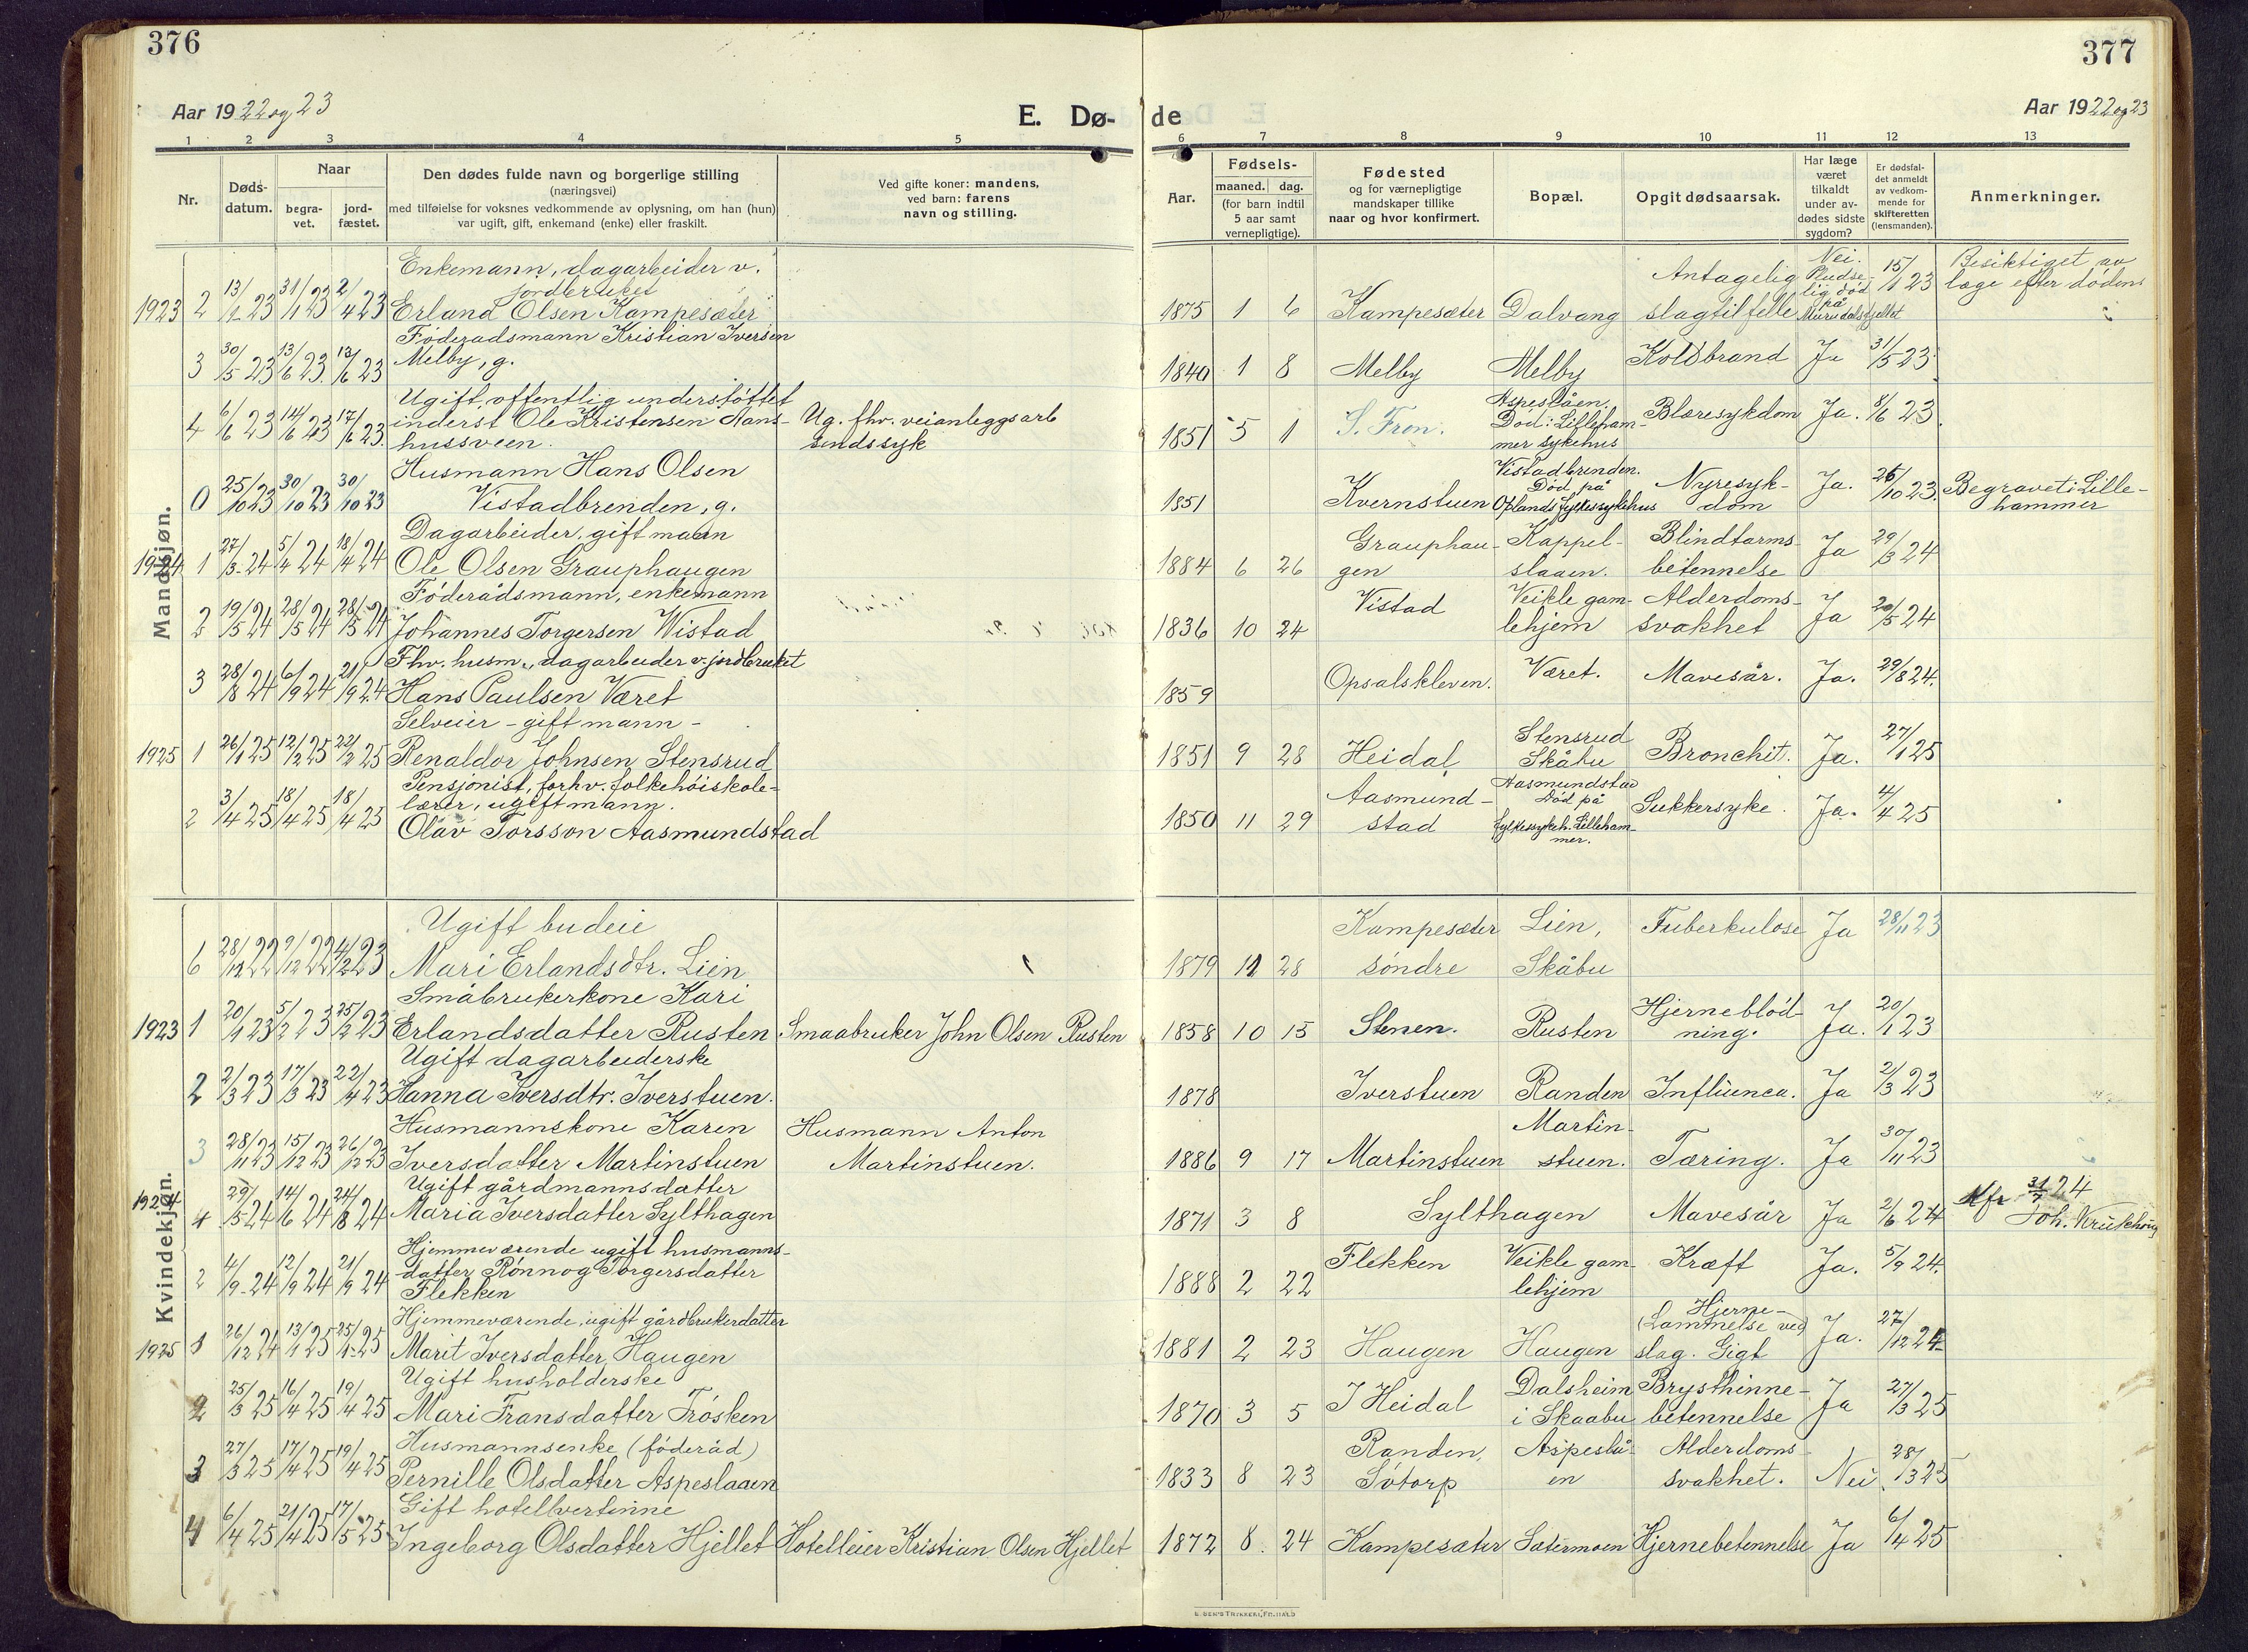 376
377
Aar 1922 og 23
E. Dø-
de
Aar 1922 og 23
1 2 3 4 5 6 7 8 9 10 11 12 13
Nr.
Døds-
datum.
Naar
begra-
vet.
jord-
fæstet.
Den dødes fulde navn og borgerlige stilling
(næringsvei)
med tilføielse for voksnes vedkommende av oplysning, om han (hun)
var ugift, gift, enkemand (enke) eller fraskilt.
Ved gifte koner: mandens,
ved barn: farens
navn og stilling.
Aar.
Fødsels-
maaned. dag.
(for barn indtil
5 aar samt
vernepligtige).
Fødested
og for værnepligtige
mandskaper tillike
naar og hvor konfirmert.
Bopæl.
Opgit dødsaarsak.
Har læge
været
tilkaldt
under av-
dødes sidste
sygdom?
Er dødsfal-
det anmeldt
av vedkom-
mende for
skifteretten
(lensmanden).
Anmerkninger.
Mandskjøn.
Enkemann, dagarbeider v.
jordbruket
1923 2 13/1 23 31/1 23 2/4 23 Erland Olsen Kampesæter
1875 1 6 Kampesæter Dalvang
Antagelig
slagtilfelle
Nei.
Pludse-
lig død
på
Murudalsfjellet
15/1 23
Besiktiget av
læge efter dødens
Føderadsmann Kristian Iversen
3 30/5 23 13/6 23 13/6 23 Melby, g.
1840 1 8 Melby Melby Koldbrand Ja 31/5 23
Ugift offentlig understøttet
4 6/6 23 14/6 23 17/6 23 inderst Ole Kristensen Hans-
hussveen.
Ug. fhv. veianleggsarb
sindssyk
1851 5 1 S. Fron.
Aspeslåen.
Død i Lilleham-
mer sykehus
Blæresykdom Ja. 8/6 23
Husmann Hans Olsen
0 25/10 23 30/10 23 30/10 23 Vistadbrenden, g.
1851 Kvernstuen
Vistadbrenden.
Død på
Oplands fylkessykehus
Nyresyk-
dom
Ja. 26/10 23.
Begravet i Lille-
hammer
Dagarbeider, gift mann
1924 1 27/3 24 5/4 24 18/4 24 Ole Olsen Grauphaugen
1884 6 26 Grauphau-
gen
Kappel-
slaaen.
Blindtarms-
betennelse
Ja 29/3 24
Føderådsmann, enkemann
2 19/5 24 28/5 24 28/5 24 Johannes Torgersen Wistad
1836 10 24 Vistad
Veikle gam-
lehjem
Alderdoms-
svakhet
Ja 20/5 24
Fhv. husm., dagarbeider v. jordbruket
3 28/8 24 6/9 24 21/9 24 Hans Paulsen Været
1859 Opsalskleven. Været. Mavesår. Ja. 29/8 24.
Selveier - gift mann -
1925 1 26/1 25 12/2 25 22/2 25 Renaldor Johnsen Stensrud
1851 9 28 Heidal
Stensrud
Skåbu
Bronchit. Ja. 27/1 25
Pensjonist, forhv. folkehøiskole-
lærer, ugift mann.
2 3/4 25 18/4 25 18/4 25 Olav Torsson Aasmundstad
1850 11 29 Aasmund-
stad
Aasmundstad
Død på
fylkessykeh. Lilleham-
mer.
Sukkersyke. Ja. 4/4 25
Kvindekjøn.
Ugift budeie
6 28/12 22 9/12 22 4/2 23 Mari Erlandsdtr. Lien
1879 11 28 Kampesæter
søndre
Lien,
Skåbu
Tuberkulose Ja 28/11 23
Småbrukerkone Kari
1923 1 20/1 23 5/2 23 25/2 23 Erlandsdatter Rusten. Smaabruker John Olsen Rusten
1858 10 15 Stenen. Rusten
Hjerneblød-
ning.
Ja. 20/1 23
Ugift dagarbeiderske
2 2/3 23 17/3 23 22/4 23 Hanna Iversdtr. Iverstuen.
1878 Iverstuen Randen Influenca. Ja 2/3 23
Husmannskone Karen
3 28/11 23 15/12 23 26/12 23 Iversdatter Martinstuen
Husmann Anton
Martinstuen.
1886 9 17 Martinstuen
Martin-
stuen.
Tæring. Ja 30/11 23
Ugift gårdmannsdatter
1924 29/5 24 14/6 24 24/8 24 Maria Iversdatter Sylthagen
1871 3 8 Sylthagen Mavesår Ja 2/6 24
31/7 24
Joh. Krukhoug
Hjemmeværende ugift husmanns-
2 4/9 24 12/9 24 21/9 24 datter Rønnog Torgersdatter
Flekken
1888 2 22 Flekken
Veikle gam-
lehjem
Kræft Ja. 5/9 24.
Hjemmeværende, ugift gårdbrukerdatter
1925 1 26/12 24 13/1 25 25/1 25 Marit Iversdatter Haugen
1881 2 23 Haugen Haugen
Hjerne-
(Lammelse ved)
slag. Gigt
Ja. 27/12 24
Ugift husholderske
2 25/3 25 16/4 25 19/4 25 Mari Fransdatter Trøsken
1870 3 5 I Heidal
Dalsheim
i Skaabu
Brysthinne-
betennelse
Ja 27/3 25
Husmannsenke (føderåd)
3 27/3 25 17/4 25 19/4 25 Pernille Olsdatter Aspeslaaen
1833 8 23 Randen,
Sótorp
Aspeslå-
en
Alderdoms-
svakhet.
Nei. 28/3 25
Gift hotellvertinne
4 6/4 25 21/4 25 17/5 25 Ingeborg Olsdatter Hjellet Hotelleier Kristian Olsen Hjellet
1872 8 24 Kampesæter Sætermoen Hjernebetennelse Ja 6/4 25